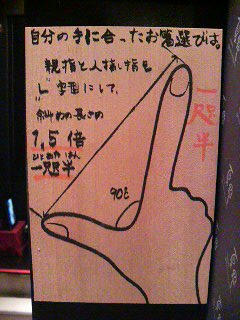 自分の手に合ったお箸選びは。
親指と人指し指を
L 字型にして、
斜めの長さの
1,5倍
ひとあたはん
一咫半
90°
一咫半